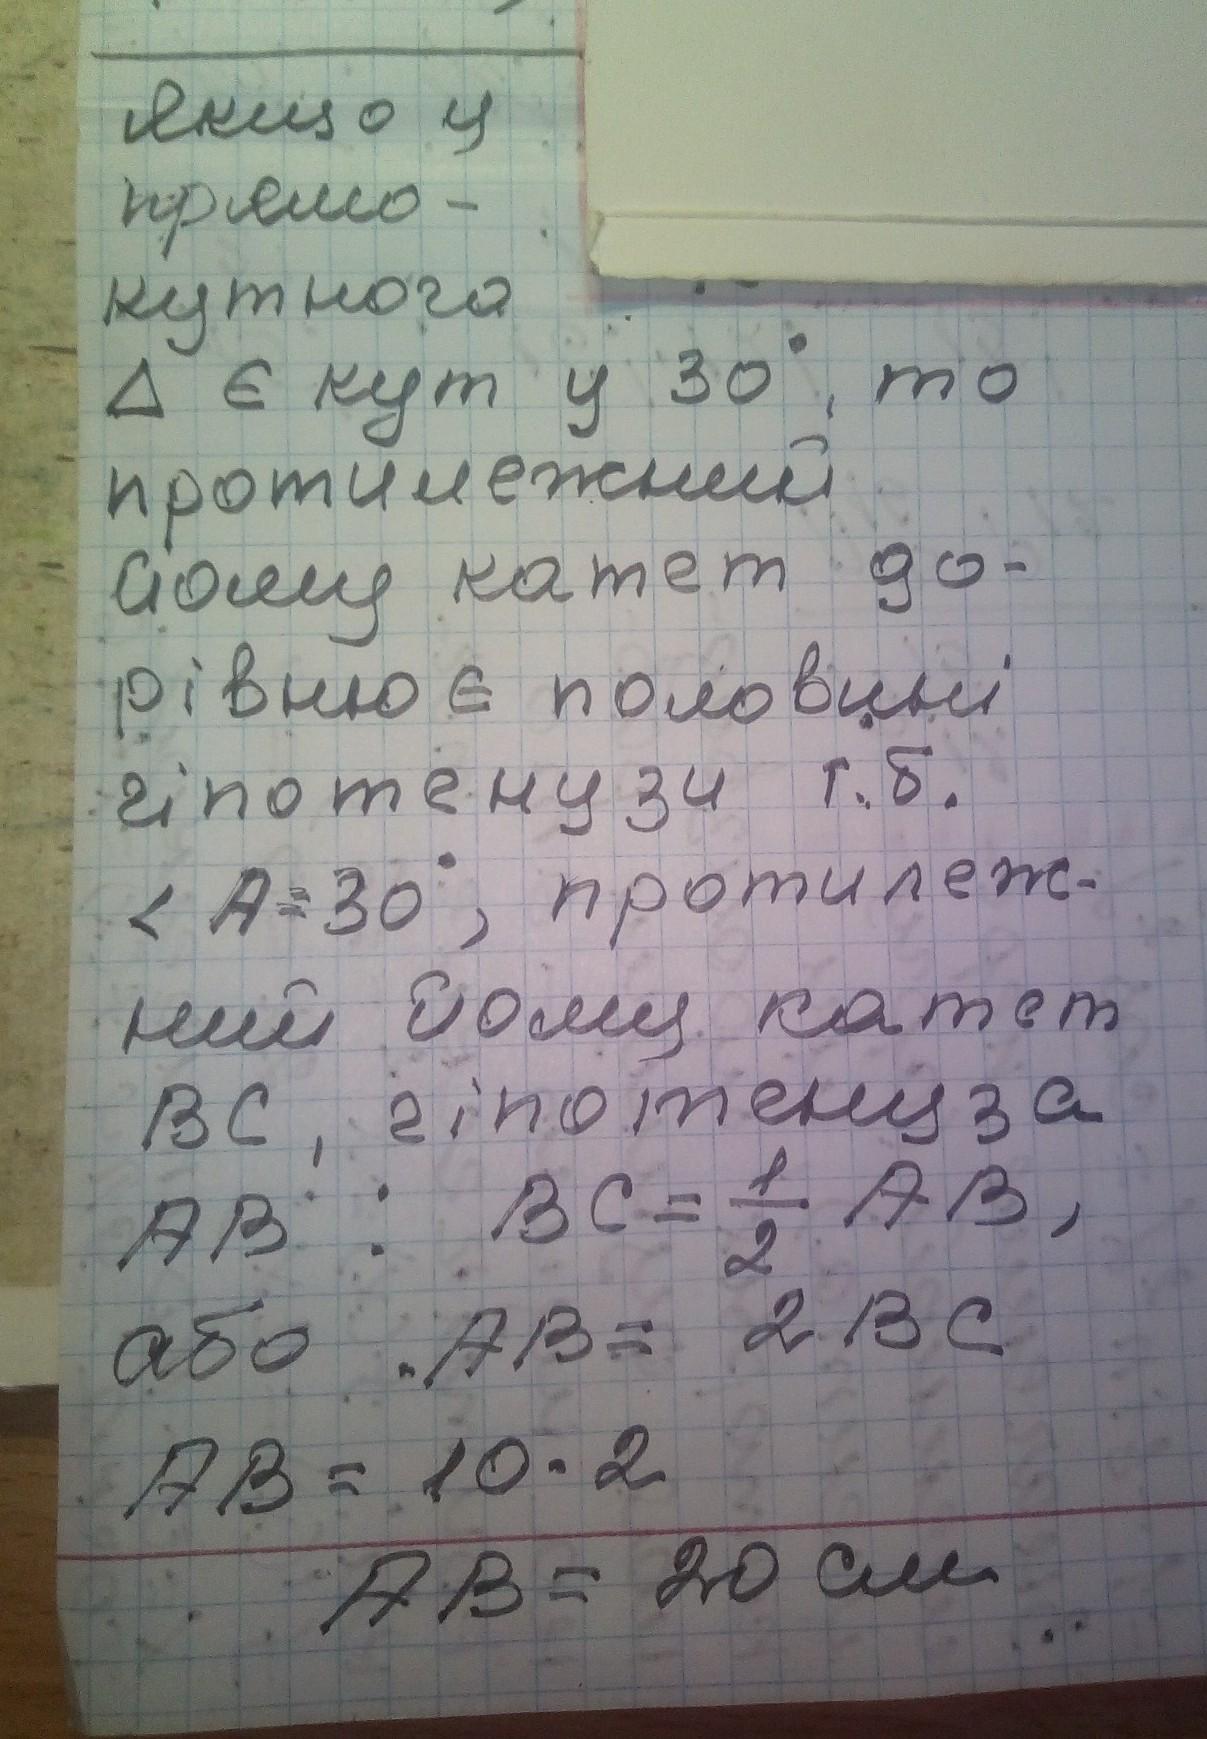 Якщо у
прямо-
кутного
Δ є кут у 30°, то
протилежний
йому катет до-
рівнює половині
гіпотенузи т.б.
< A=30°, протилеж-
ний йому катет
BC, гіпотенуза
AB : BC = 1/2 AB,
або AB = 2 BC
AB = 10·2
AB = 20 см